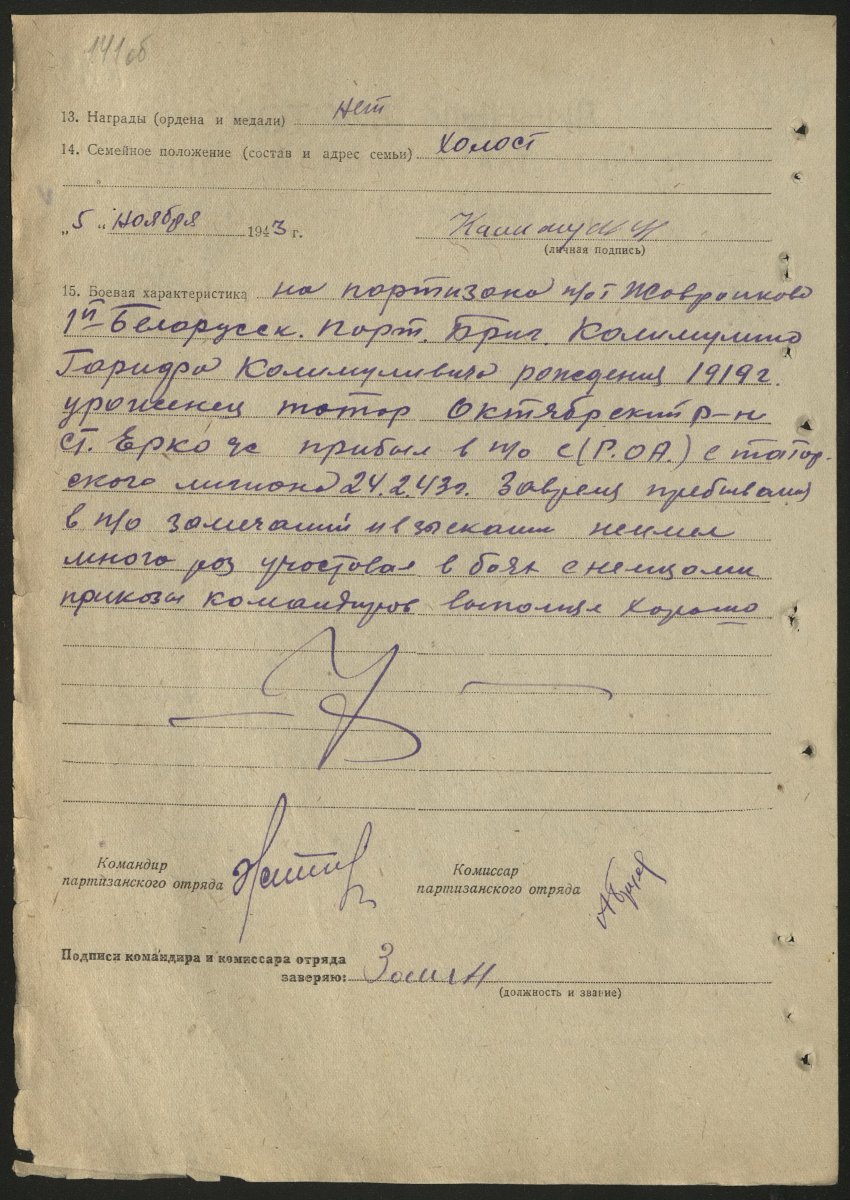 141об
13. Награды (ордена и медали) нет
14. Семейное положение (состав и адрес семьи) Холост
„5" ноября 1943 г.
(личная подпись)
15. Боевая характеристика на партизана п/от Жовранково
1й Белорусск. Парт. Бриг. Калимулина
Гарифа Калимуливича рождения 1919 г.
уроженец татар Октябрский р-н
ст. прибыл в п/о с (Р.О.А.) с татар-
ского лигиона 24.2.43 г. Завремя пребывания
в п/о замечаний и взыскании неимел
много раз участовал в боях с немцами
приказы командиров выполнял Хорошо
Командир
партизанского отряда
Комиссар
партизанского отряда
Подписи командира и комиссара отряда
заверяю:
(должность и звание)